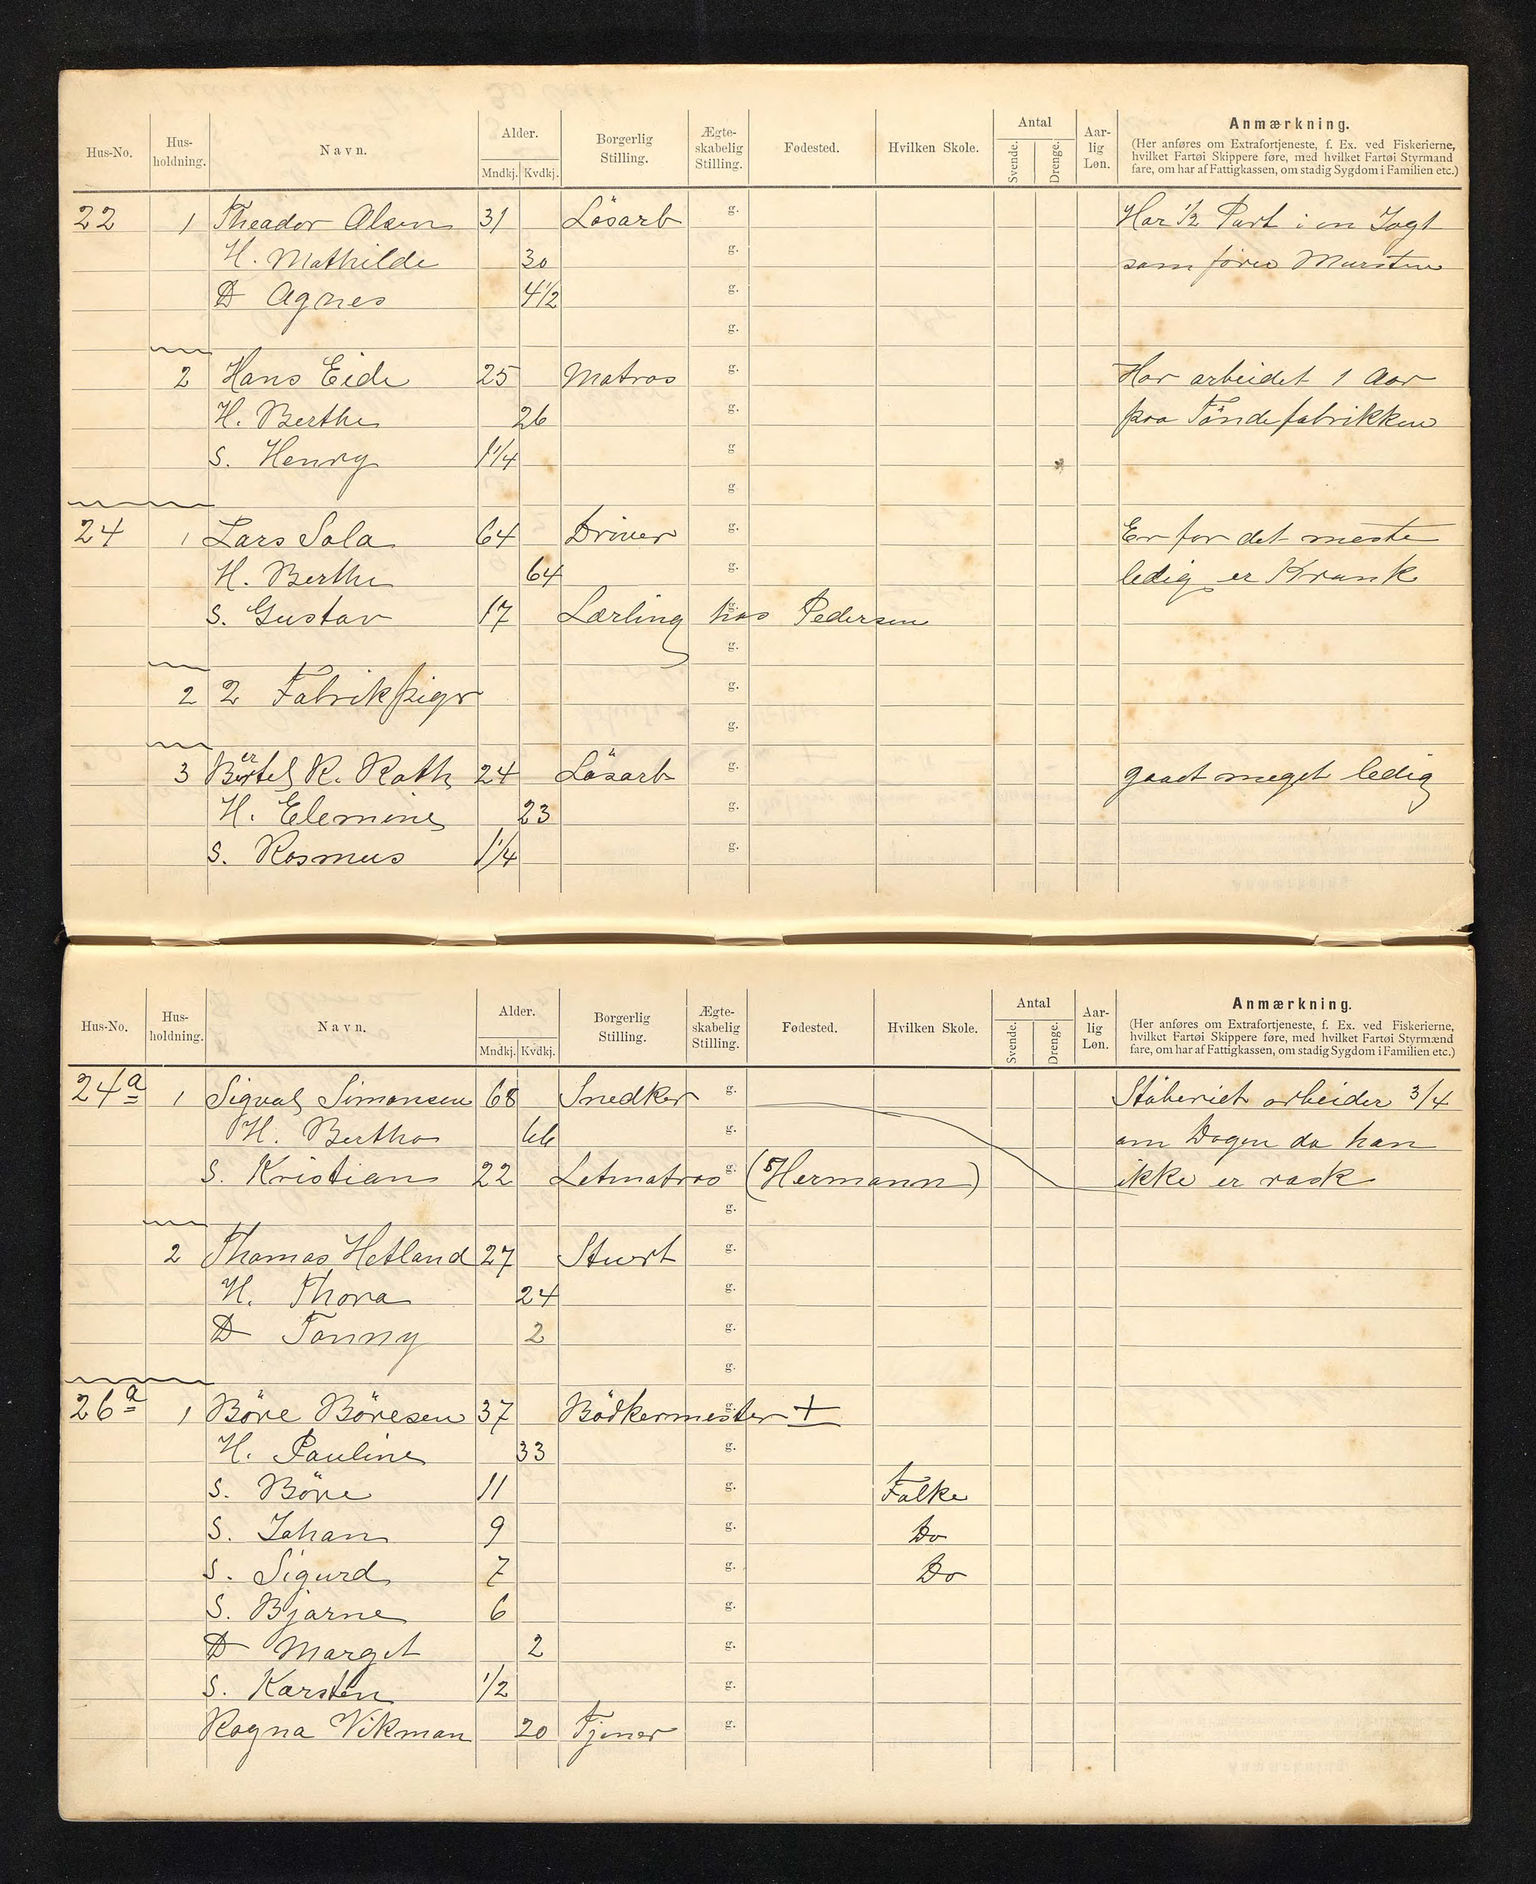 Hus-No. Hus-holdning. Navn. Alder. Mndkj. Kvdkj. Borgerlig Stilling. Ægte-skabelig Stilling. Fødested. Hvilken Skole. Antal Svende. Drenge. Aar-lig Løn. Anmærkning.
(Her anføres om Extrafortjeneste, f. Ex. ved Fiskerierne,
hvilket Fartøi Skippere føre, med hvilket Fartøi Styrmand
fare, om har af Fattigkassen, om stadig Sygdom i Familien etc.)
22 1 Theador Olsen 31 Lösarb g. Har 1/2 Part i en Jagt
H. Mathilde 30 g. som förer Mursten
D Agnes 4 1/2 g.
g.
2 Hans Eide 25 Matros g. Har arbeidet 1 Aar
H. Berthe 26 g. paa Töndefabrikken
S. Henry 1 1/4 g
g
24 1 Lars Sola 64 Driver g. Er for det meste
H. Berthe 64 g. ledig er Krank
S. Gustav 17 Lærling hos Pedersen g.
g.
2 2 Fabrikpiger g.
g.
3 Bertel R. Rath 24 Lösarb g. gaaet meget ledig
H. Elemine 23 g.
S. Rasmus 1 1/4 g.
Hus-No. Hus-holdning. Navn. Alder. Mndkj. Kvdkj. Borgerlig Stilling. Ægte-skabelig Stilling. Fødested. Hvilken Skole. Antal Svende. Drenge. Aar-lig Løn. Anmærkning.
(Her anføres om Extrafortjeneste, f. Ex. ved Fiskerierne,
hvilket Fartøi Skippere føre, med hvilket Fartøi Styrmænd
fare, om har af Fattigkassen, om stadig Sygdom i Familien etc.)
24a 1 Sigval Simonsen 68 Snedker g. Stöberiet arbeider 3/4
H. Bertha 66 g. om Dagen da han
S. Kristian 22 Letmatros g. (Hermann) ikke er rask
g.
2 Thomas Hetland 27 Stuert g.
H. Thora 24 g.
D Tonny 2 g.
g.
26a 1 Böre Böresen 37 Bödkermester + g.
H. Pauline 33 g.
S. Böre 11 g. Folke
S. Johan 9 g. Do
S. Sigurd 7 g. Do
S. Bjarne 6 g.
D Marget 2 g.
S. Karsten 1/2 g.
Ragna Vikman 20 Tjener g.